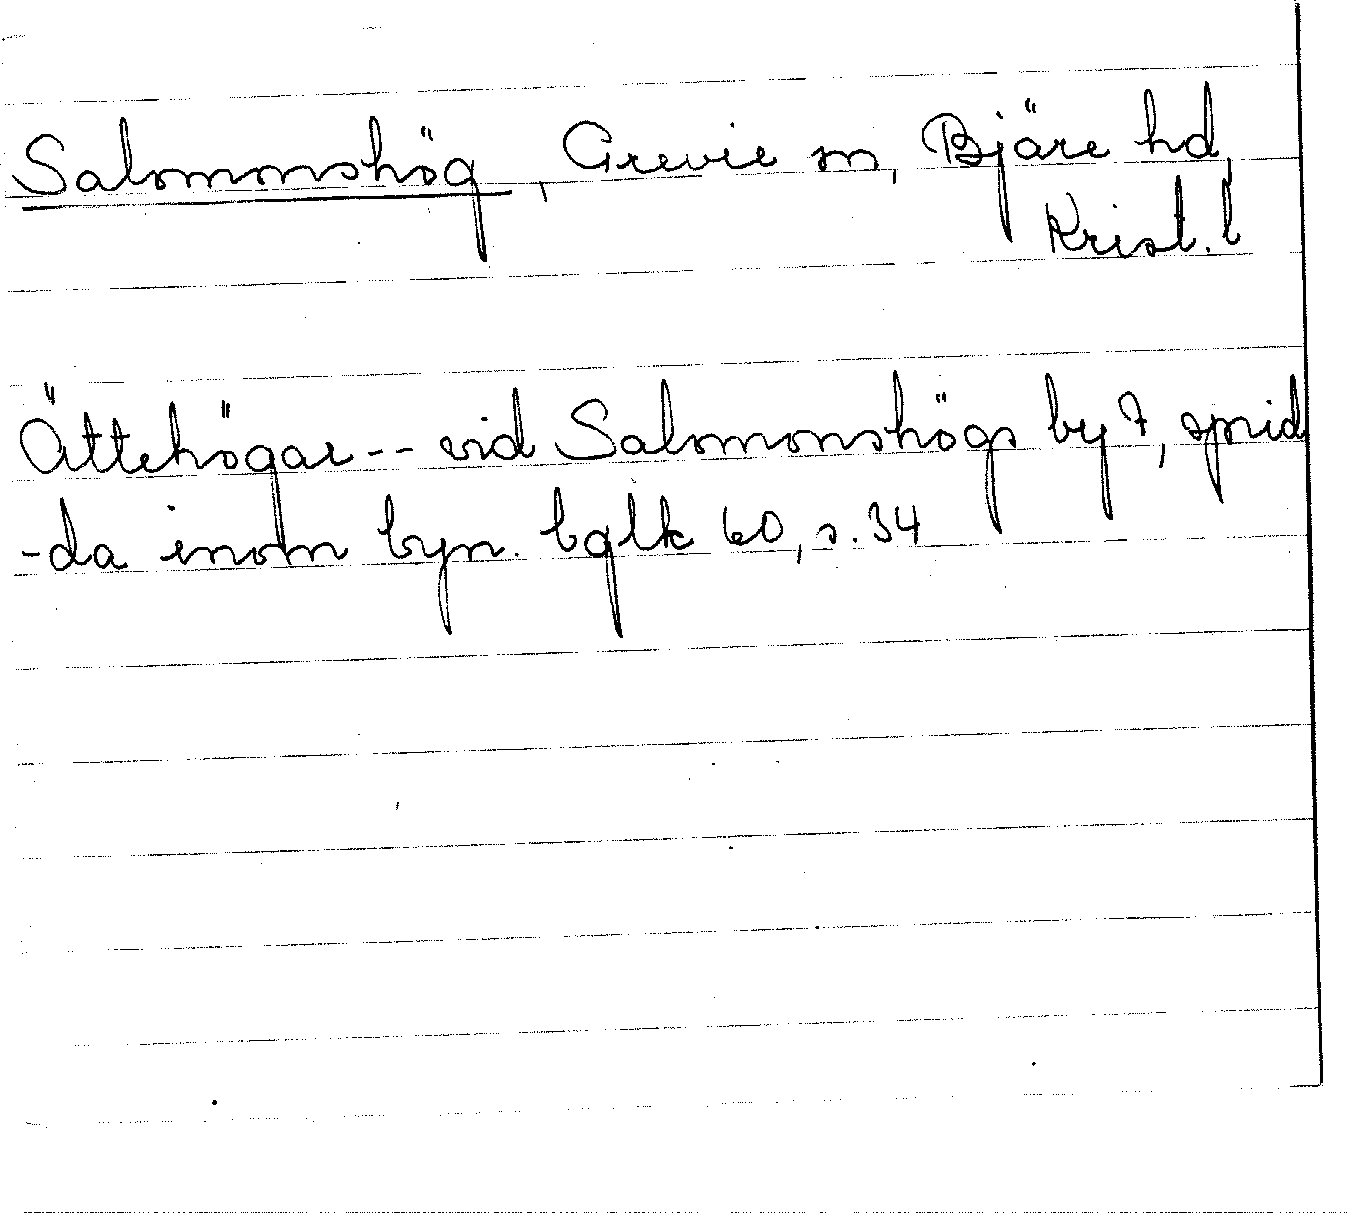 Salomonshög, Grevie sn, Bjäre hd,
Krist. l
Ättehögar -- vid Salomonshögs by 7, sprid
-da inom byn. bglk 60, s. 34